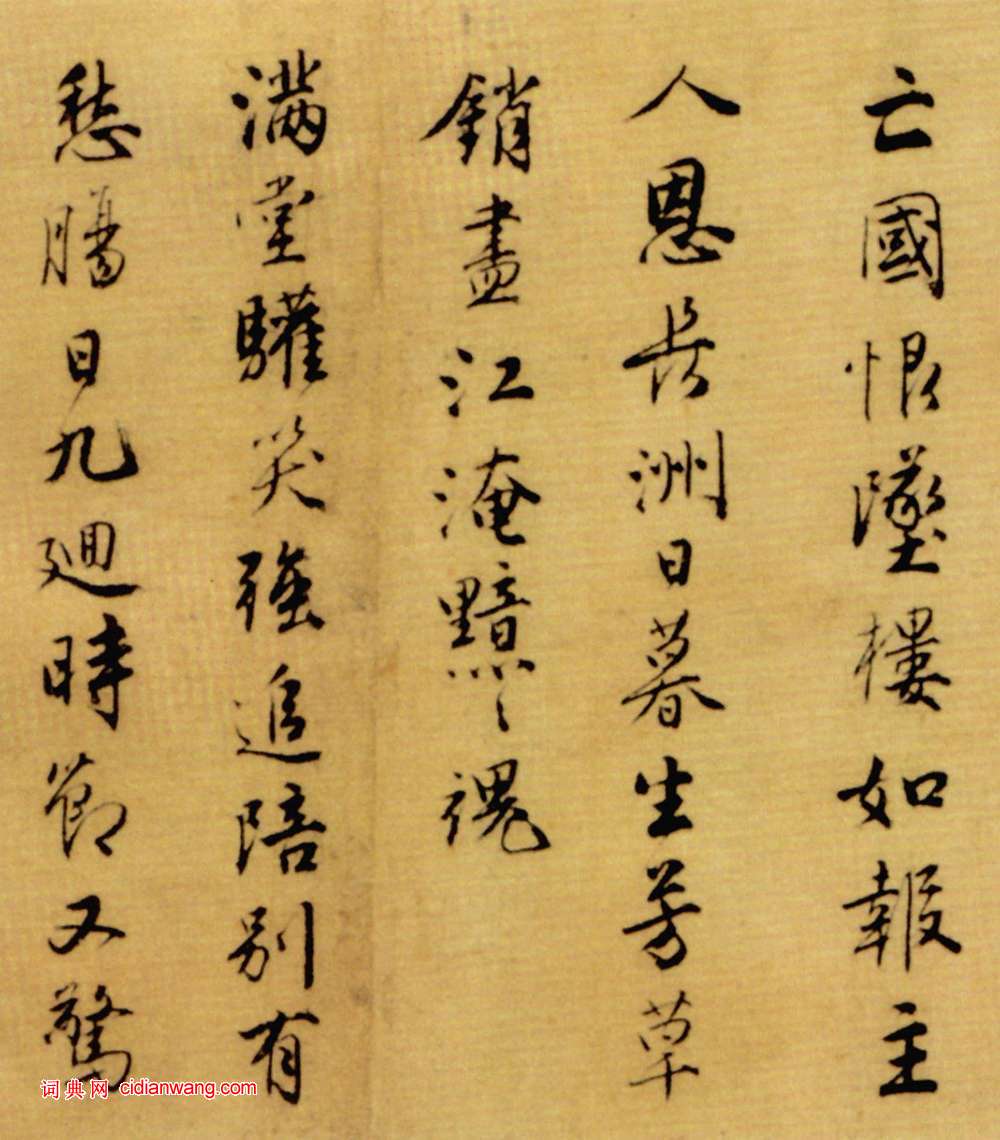 亡國恨墜樓如報主
人恩長洲日暮生芳草
銷盡江淹黯〻魂
滿堂驩笑強追陪別有
愁腸日九迴時節又驚
词典网 cidianwang.com